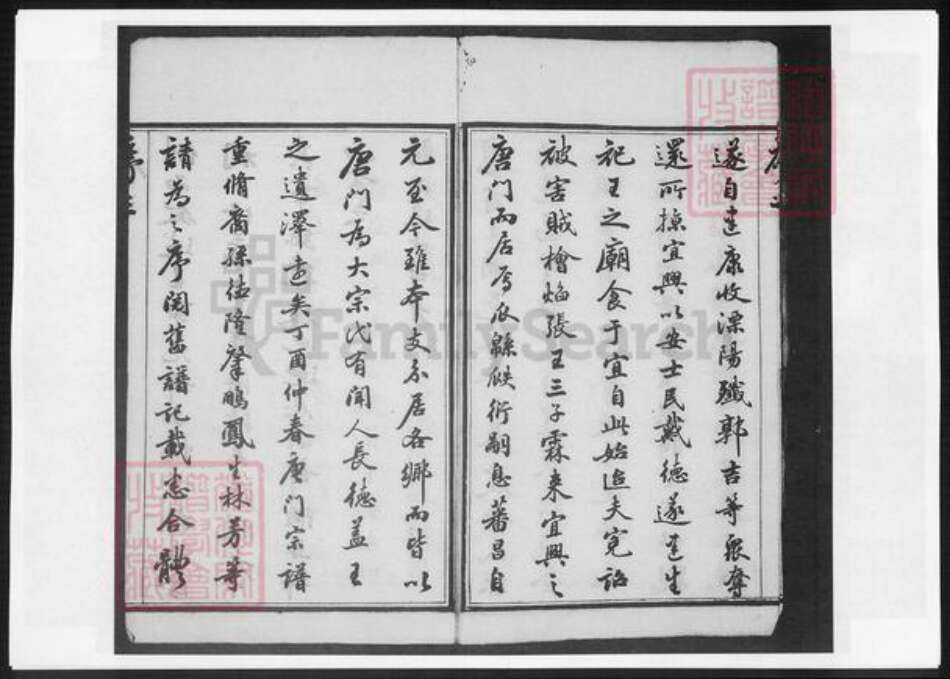 遂自建康收溧陽殲郭吉等眾奪
還所掠宜興以安士民戴德遂建生
祀王之廟食于宜自此始迨夫冤詔
被害賊檜焰張王三子霖来宜興之
唐門而居焉瓜緜瓞衍嗣息蕃昌自
元至今雖本支分居各鄉而皆以
唐門為大宗代有聞人長德蓋王
之遺澤遠矣丁酉仲春唐門宗譜
重脩裔孫德隆肇鵬鳳生林芳等
請為之序閱舊譜記載悉合體
FamilySearch